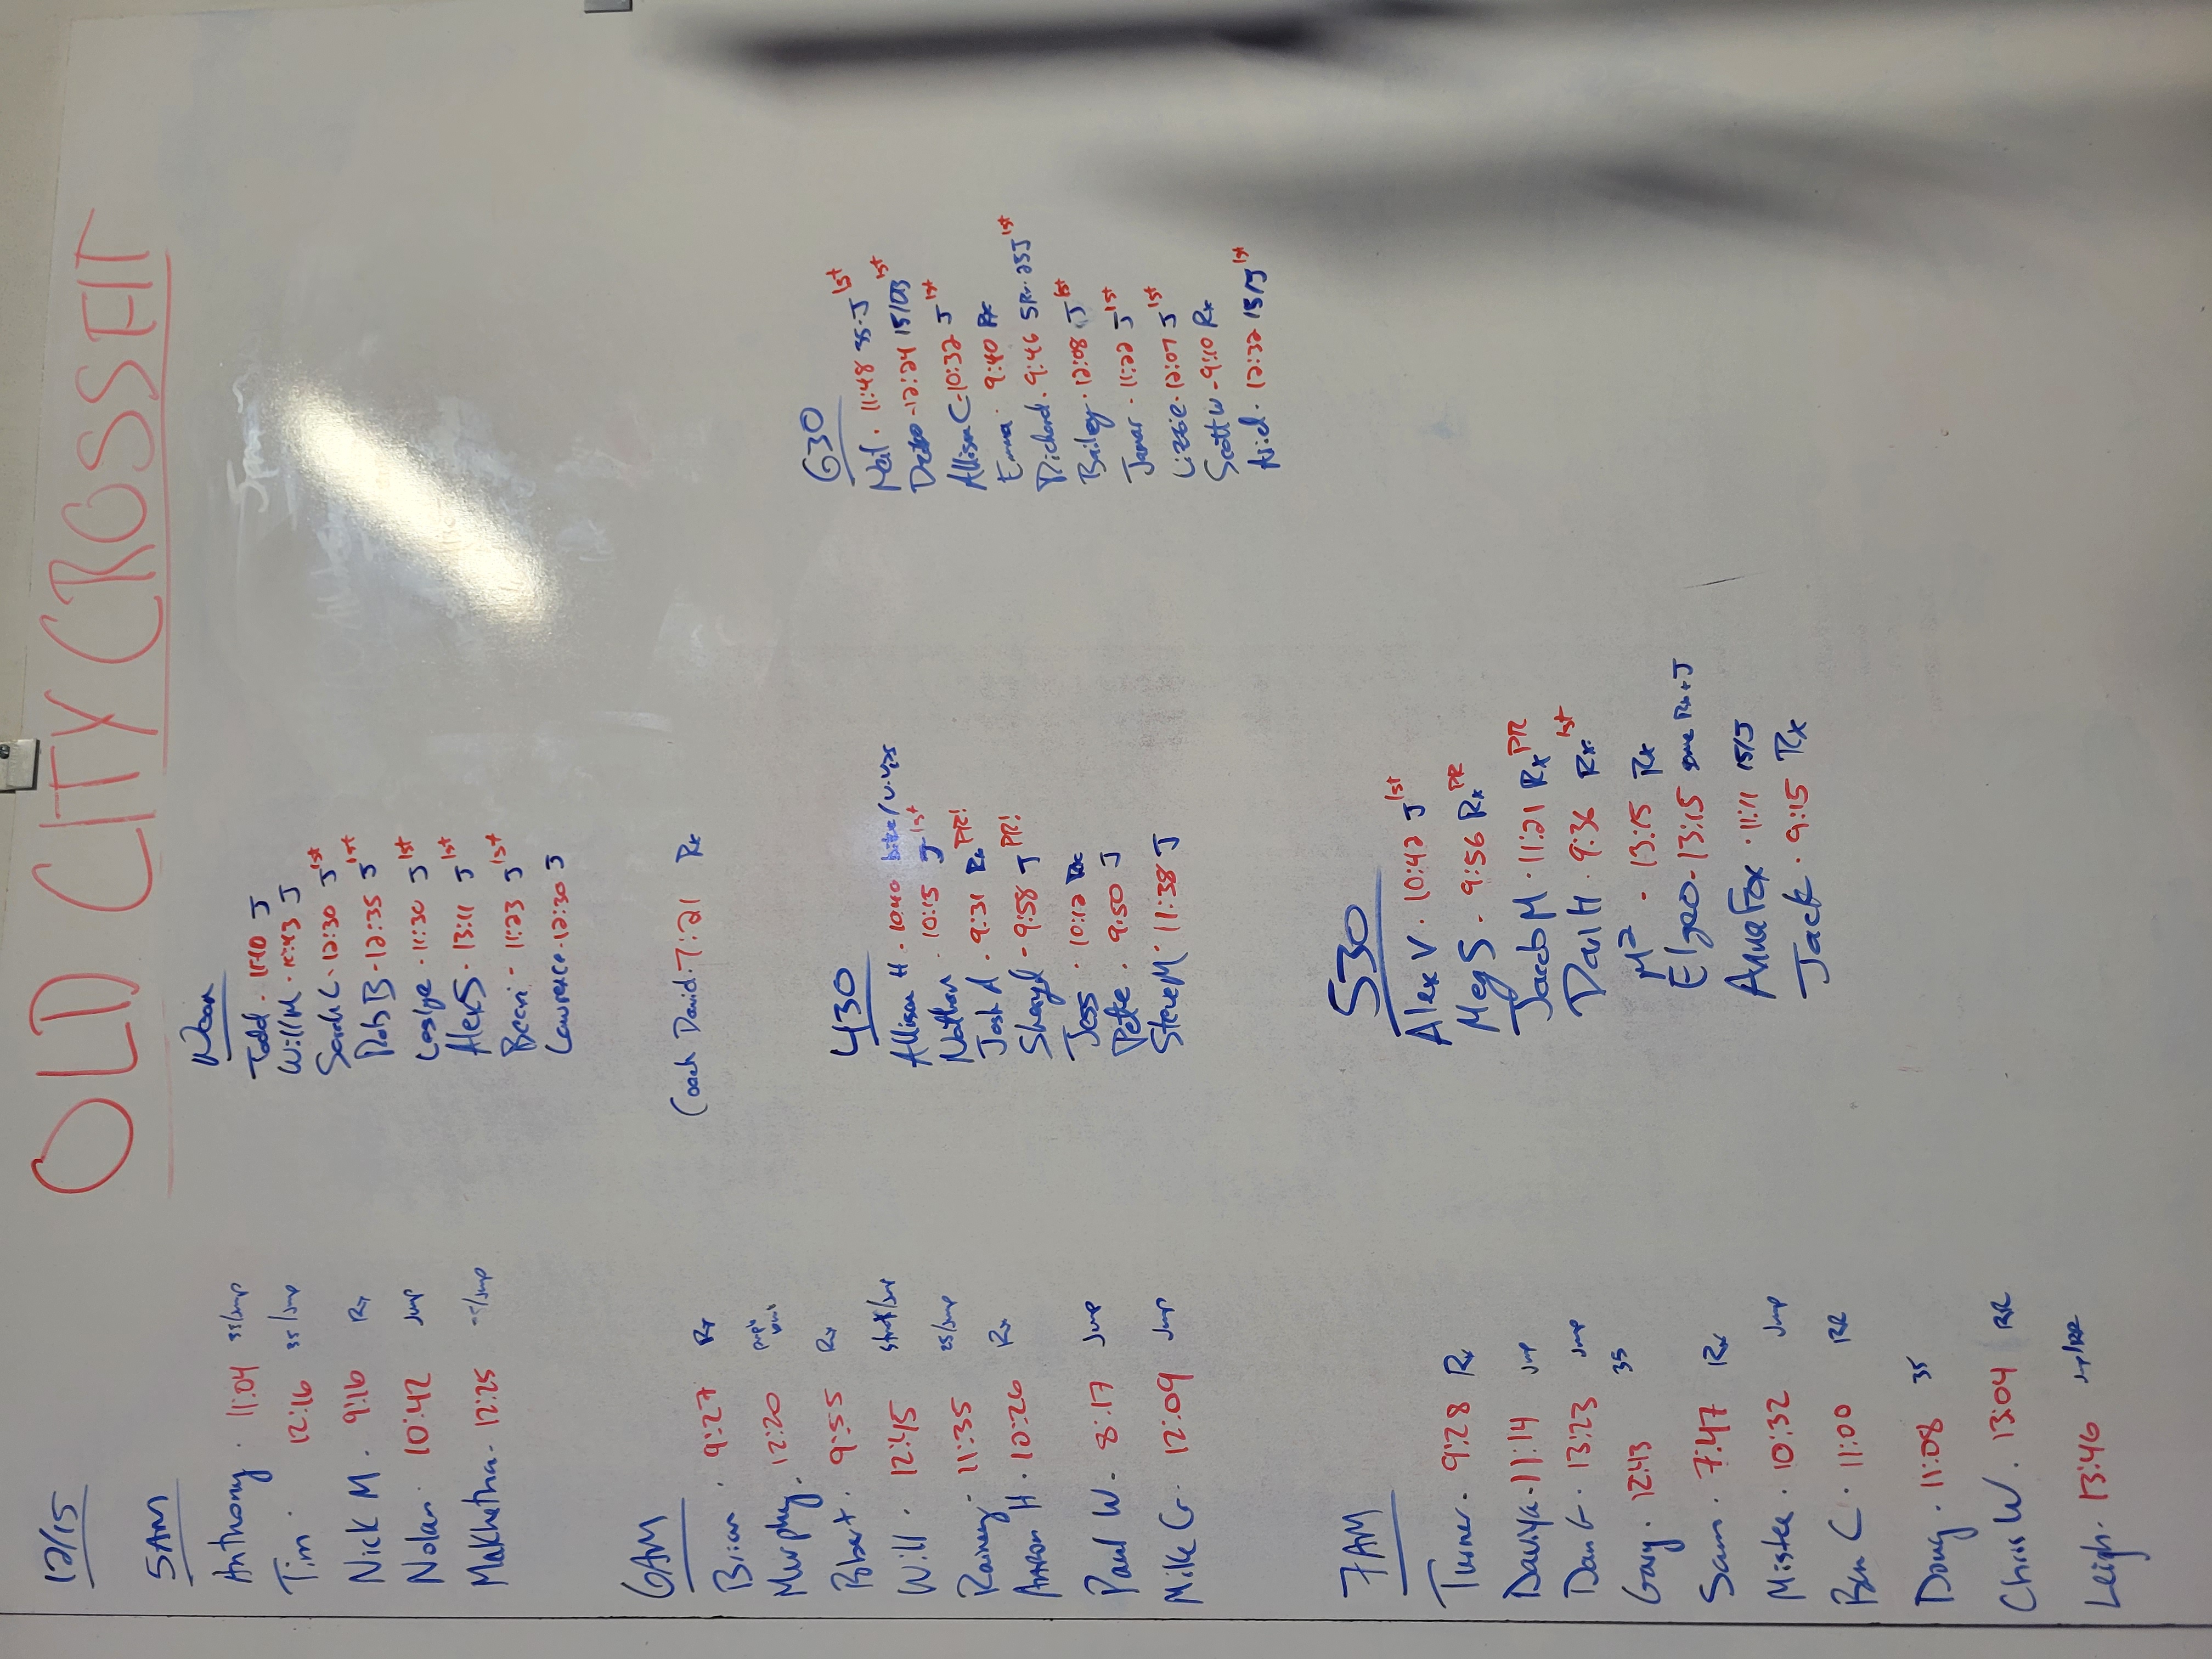 OLD CITY CROSSFIT
12/15
5AM
Anthony . 11:04 35/Jump
Tim . 12:16 35/Jump
Nick M . 9:16 Rx
Nolan . 10:42 Jump
Makhetha - 12:25 /Jump
6AM
Brian . 9:27 Rx
Murphy . 12:20
Robert . 9:55 Rx
Will . 12:45
Rainey . 11:35 25/Jump
Aaron H . 10:26 Rx
Paul W . 8:17 Jump
Mike G . 12:09 Jump
7AM
Turner . 9:28 Rx
Daviya . 11:14 Jmp
Dan G . 13:23 Jump
Gary . 12:43 35
Sam . 7:47 Rx
Mistee . 10:32 Jump
Ben C . 11:00 RR
Doug . 11:08 35
Chris W . 13:04 RR
Leigh . 13:46
Noon
Todd . 11:10 J
Will M . 11:43 J
Sarah C . 12:30 J 1st
Rob B - 12:35 J 1st
Leslye . 11:30 J 1st
Alex S . 13:11 J 1st
Becci - 11:23 J 1st
Lawrence . 12:30 J
Coach David . 7:21 Rx
430
Allison H . 10:40
Nathan . 10:15 J 1st
Josh A . 9:31 Rx PR!
Sheryl - 9:58 J PR!
Jess . 10:12 Rx
Pete . 9:50 J
Steve M . 11:38 J
530
Alex V . 10:42 J 1st
Meg S - 9:56 Rx PR
Jacob M . 11:21 Rx PR
Dan H . 9:36 Rx 1st
M2 - 13:15 Rx
Elgeo - 13:15 some Rx + J
Anna Fox . 11:11 15/J
Jack . 9:15 Rx
630
Neil . 11:48 35-J 1st
12:24 15/ 1st
Allison C - 10:32 J 1st
Emma . 9:40 Rx
Richard . 9:46 25J 1st
Bailey . 12:08 J 1st
Jamar . 11:22 J 1st
Lizzie . 12:07 J 1st
Scott W - 9:10 Rx
12:32 15/J 1st